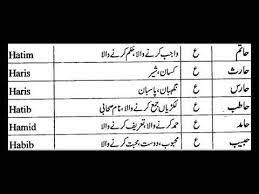 Hatim واجب کرنے والا، حکم کرنے والا ع حاتم
Haris کسان، شیر ع حارث
Haris نگہبان، پاسبان ع حارس
Hatib لکڑیاں جمع کرنے والا، نام صحابی ع حاطب
Hamid حمد کرنے والا، تعریف کرنے والا ع حامد
Habib محبوب، دوست، محبت کرنے والا ع حبیب